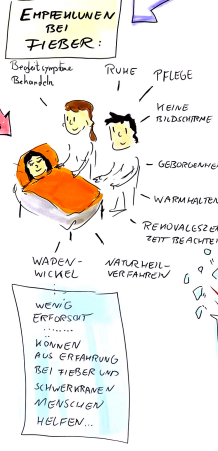 EMPFEHLUNEN
BEI
FIEBER:
Begleitsymptome
Behandeln
RUHE
PFLEGE
KEINE
BILDSCHIRME
GEBORGENHEI
WARMHALTEN
ZEIT BEACHTEN
WADEN-
WICKEL
NATURHEIL-
VERFAHREN
WENIG
ERFORSCHT
........
KÖNNEN
AUS ERFAHRUNG
BEI FIEBER UND
SCHWERKRANKEN
MENSCHEN
HELFEN...